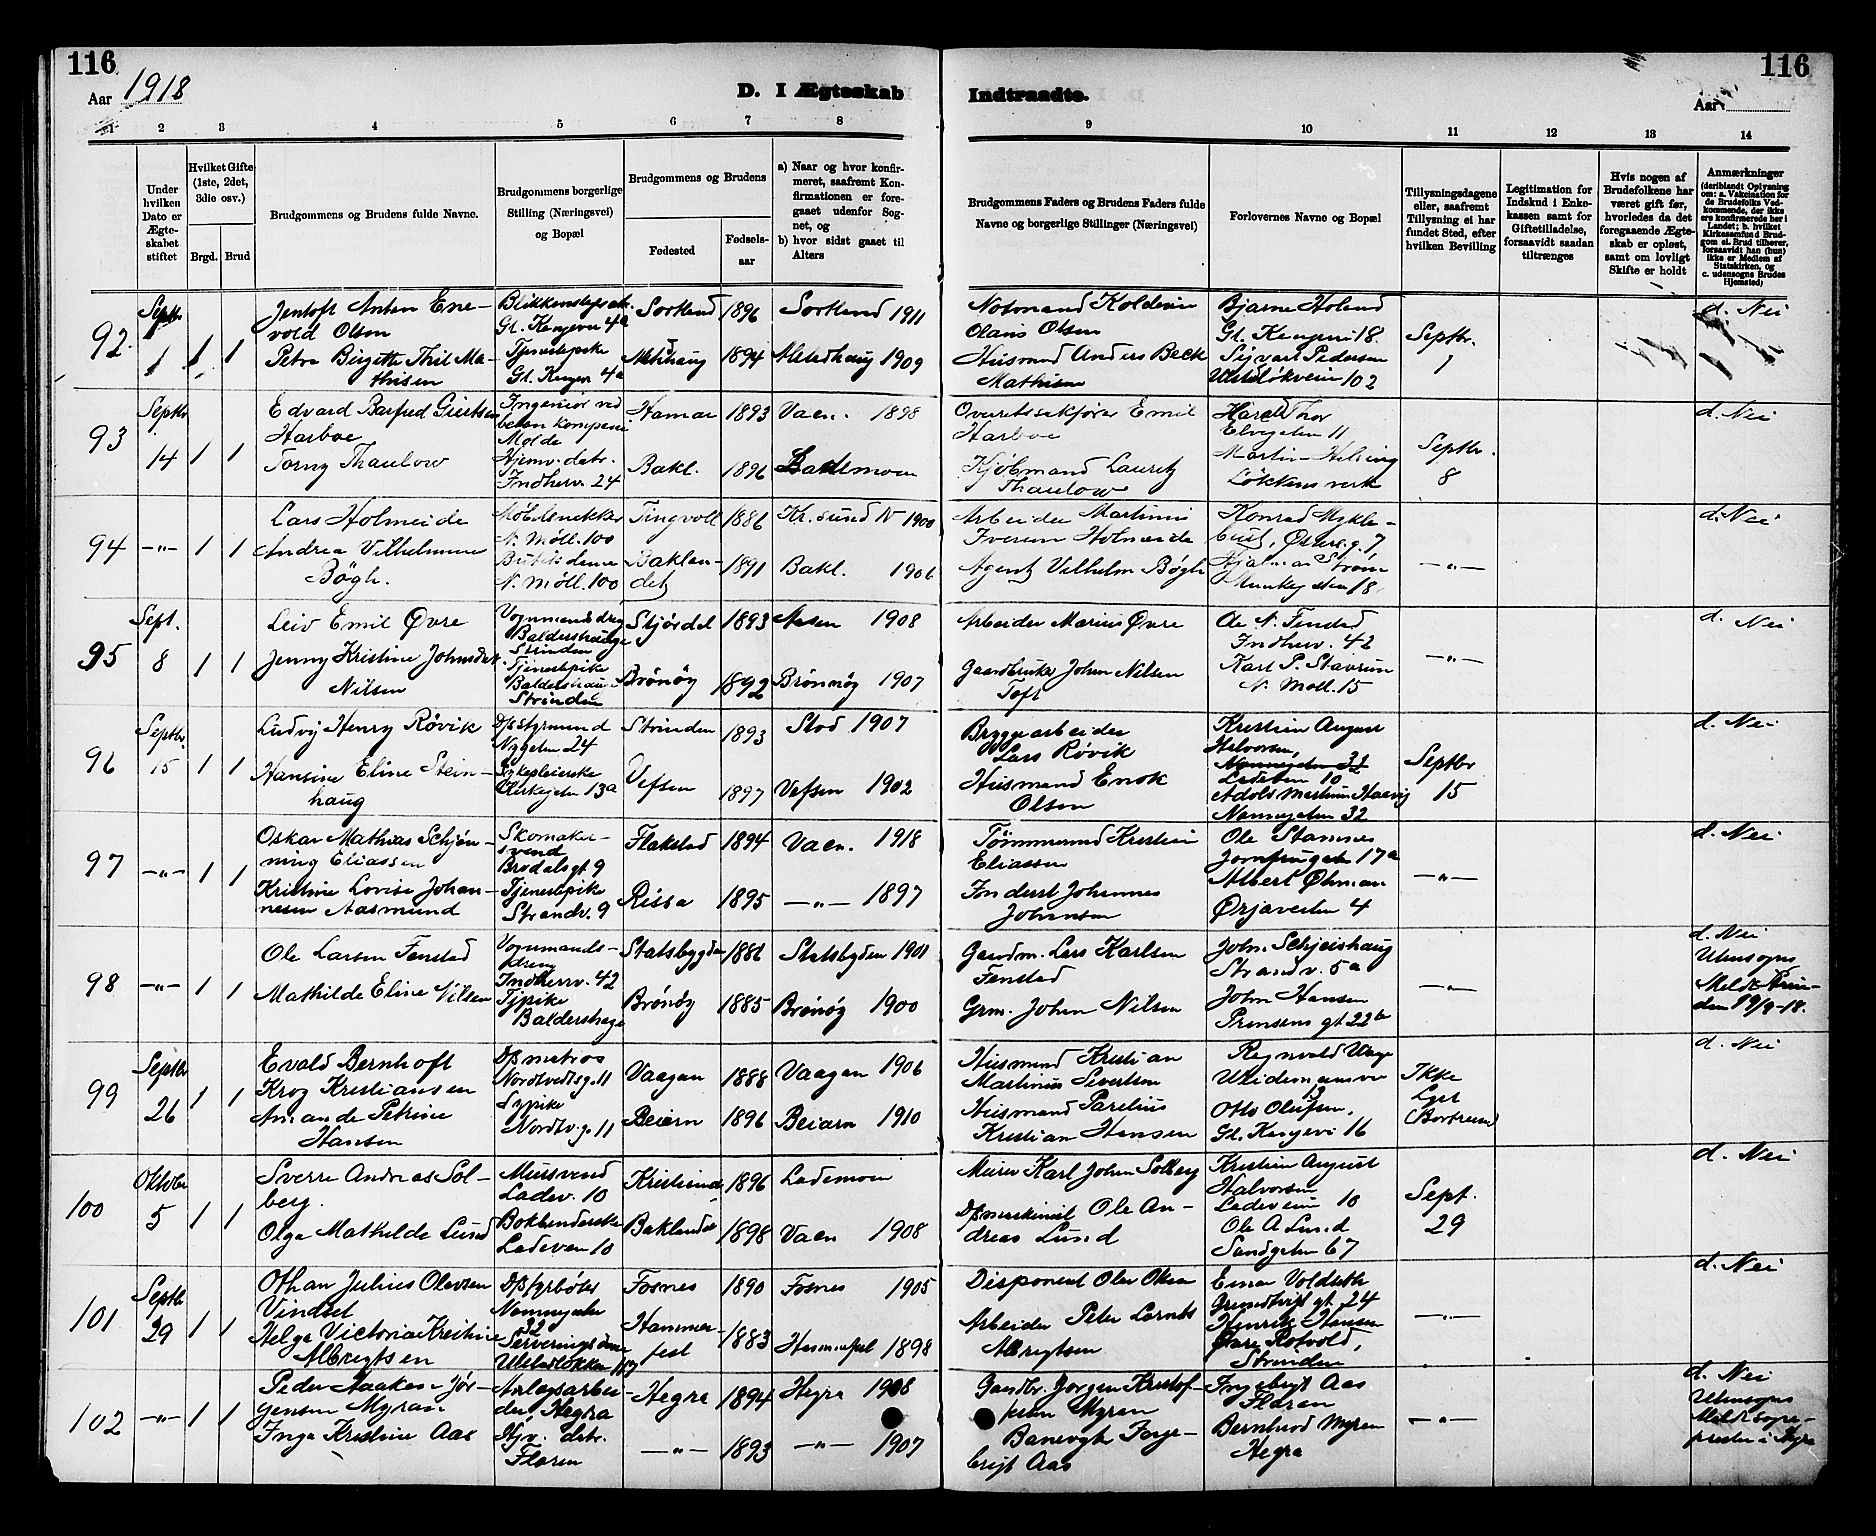 116
116
Aar 1918
D. I Ægteskab
Indtraadte.
Aar
1
2
3
4
5
6
7
8
9
10
11
12
13
14
Under hvilken Dato er Ægteskabet stiftet
Hvilket Gifte (1ste, 2det, 3die osv.)
Brgd. Brud
Brudgommens og Brudens fulde Navne.
Brudgommens borgerlige Stilling (Næringsvei) og Bopæl
Brudgommens og Brudens
Fødested
Fødsels-aar
a) Naar og hvor konfirmeret, saafremt Konfirmationen er foregaaet udenfor Sognet, og
b) hvor sidst gaaet til Alters
Brudgommens Faders og Brudens Faders fulde Navne og borgerlige Stillinger (Næringsvei)
Forlovernes Navne og Bopæl
Tillysningsdagene eller, saafremt Tillysning ei har fundet Sted, efter hvilken Bevilling
Legitimation for Indskud i Enkekassen samt for Giftetilladelse, forsaavidt saadan tiltrænges
Hvis nogen af Brudefolkene har været gift før, hvorledes da det foregaaende Ægteskab er opløst, samt om lovligt Skifte er holdt
Anmærkninger
(deriblandt Oplysning om: a. Vakcination for de Brudefolks Vedkommende, der ikke ere konfirmerede her i Landet; b. hvilket Kirkesamfund Brudgom el. Brud tilhører, forsaavidt han (hun) ikke er Medlem af Statskirken, og c. udensogns Brudes Hjemsted)
92. Septbr. 1 1 1
Jentoft Anton Enevold Olsen
Gl. Kongevei 4a Sortland 1896 Sortland 1911
Olaus Olsen
Bjarne Holand Gl. Kongevei 18.
Septbr. 1
d. Nei
Petra Birgitte Thil Mathisen
Tjenestepike Gl. Kongev 4a
1894 Alstadhaug 1909
Husmand Anders Beck Mathisen
Sigvart Pedersen
93 Septbr 14 1 1
Edvard Barfred Giertsen Harboe
Ingeniør ved beton kompani Molde
Hamar 1893 Vaen. 1898
Overretssakfører Emil Harboe
Harald Thor Elvegaten 11
Septbr. 8
d. Nei
Torny Thaulow
Hjemv. datr. Indherv. 24
Bakl. 1896 Lademoen
Kjøbmand Lauritz Thaulow
Løkkens verk
94 —"— 1 1
Lars Holmeide
Møbelsnekker N. Møll. 100
Tingvoll 1886 Kr.sund N 1900
Arbeider Martinus Iversen Holmeide
Konrad Myklebust,
—"—
d. Nei
Andrea Vilhelmine Bøgh.
N. Møll. 100
Baklandet 1891 Bakl. 1906
Agent Vilhelm Bøgh
Hjalmar Strøm Munkegaten 18.
95 Sept. 8 1 1
Leiv Emil Øvre
Vognmandsdreng Baldershauge Strinden
Stjørdal 1893 Aasen 1908
Arbeider Marius Øvre
Ole N. Fenstad Indherv. 42
—"—
d. Nei
Jenny Kristine Johnsdat. Nilsen
Tjenestepike Baldershaug Strinden
Brönöy 1892 Brönnöy 1907
Gaardbruker Johan Nilsen Toft
Karl P. Stavrum N. Møll. 15
96 Septbr. 15 1 1
Ludvig Henry Røvik
D/S styrmand Nygaten 24
Strinden 1893 Stod 1907
Bryggearbeider Lars Røvik
Kristian August Halvorsen, Nonnegaten 32 Ladeveien 10
Septbr 15
d. Nei
Hansine Eline Steinhaug
Sykepleierske 13a
Vefsen 1897 Vefsen 1902
Husmand Enok Olsen
Nonnegaten 32
97 —"— 1 1
Oskar Mathias Schjønning Eliassen
Skomakersvend Brødalsgt 9
Flakstad 1894 Vaen. 1918
Tømmermand Kristian Eliassen
Ole Stamnes Jomfrugaten 17a
—"—
d. Nei
Kristine Lovise Johannesen Aasmund
Tjenestepike Strandv. 9
Rissa 1895 —"— 1897
Johannes Johansen
Albert Øhman Ørjaveiten 4
98 —"— 1 1
Ole Larsen Fenstad
Vognmandsdreng Indherrv. 42
Statsbygden 1886 Statsbygden 1901
Gaardm. Lars Karlsen Fenstad
Strandv. 5a
—"—
d. Nei
Utensogns
den 19/9-18.
Mathilde Eline Nilsen
Tj.pike Baldershage
Brönöy 1885 Brönöy 1900
Grm. Johan Nilsen
John Hansen Prinsens gt 22b
99 Septbr 26 1 1
Evald Bernhoft Krog Kristiansen
D/S matros Nordtvedtsg. 11
Vaagan 1888 Vaagan 1906
Husmand Kristian Martinus Sivertsen
Ragnvald Waage
Ikke Lyst
d. Nei
Amanda Petrine Hansen
Sypike Nordtv.g. 11
Beiarn 1896 Beiarn 1910
Husmand Parelius Kristian Hansen
Otto Olufsen, Gl. Kongevei 16
100 Oktober 5 1 1
Sverre Andreas Solberg.
Mursvend Ladev. 10
Kristiansd 1896 Lademoen
Murer Karl Johan Solberg
Kristian August Halvorsen Ladeveien 10
Sept. 29
d. Nei
Olga Mathilde Lund
Bokbinderske Ladeveien 10
Baklandet 1898 Vaen 1908
D/S maskinist Ole Andreas Lund
Ole A Lund Sandgaten 67
101 Septbr 29 1 1
Othar Julius Olavsen Vindset
D/S fyrbøter Nonnegaten 32
Fosnes 1890 Fosnes 1905
Disponent Olav Olsen
Einar Voldseth Grundtvigs gt. 24
—"—
d. Nei
Helga Victoria Kristine Albrigtsen
Serveringsdame
Hammerfest 1883 Hammerfest 1898
Arbeider Peter Lornts Albrigtsen
Henrik Hansen Øvre Rotvold, Strinden
102 —"— 1 1
Peder Haaken Jørgensen Myran
Anlægsarbeider Hegra
Hegra 1894 Hegra 1908
Gaardbr. Jørgen Kristofersen Myran
Ingebrigt Aas Floren
—"—
d. Nei
Utensogns
Meldt sognepresten i Hegra
Inga Kristine Aas
Hjv. datr. Floren
—"— 1893 —"— 1907
Banevogter Ingebrigt Aas
Bernhard Myran Hegra